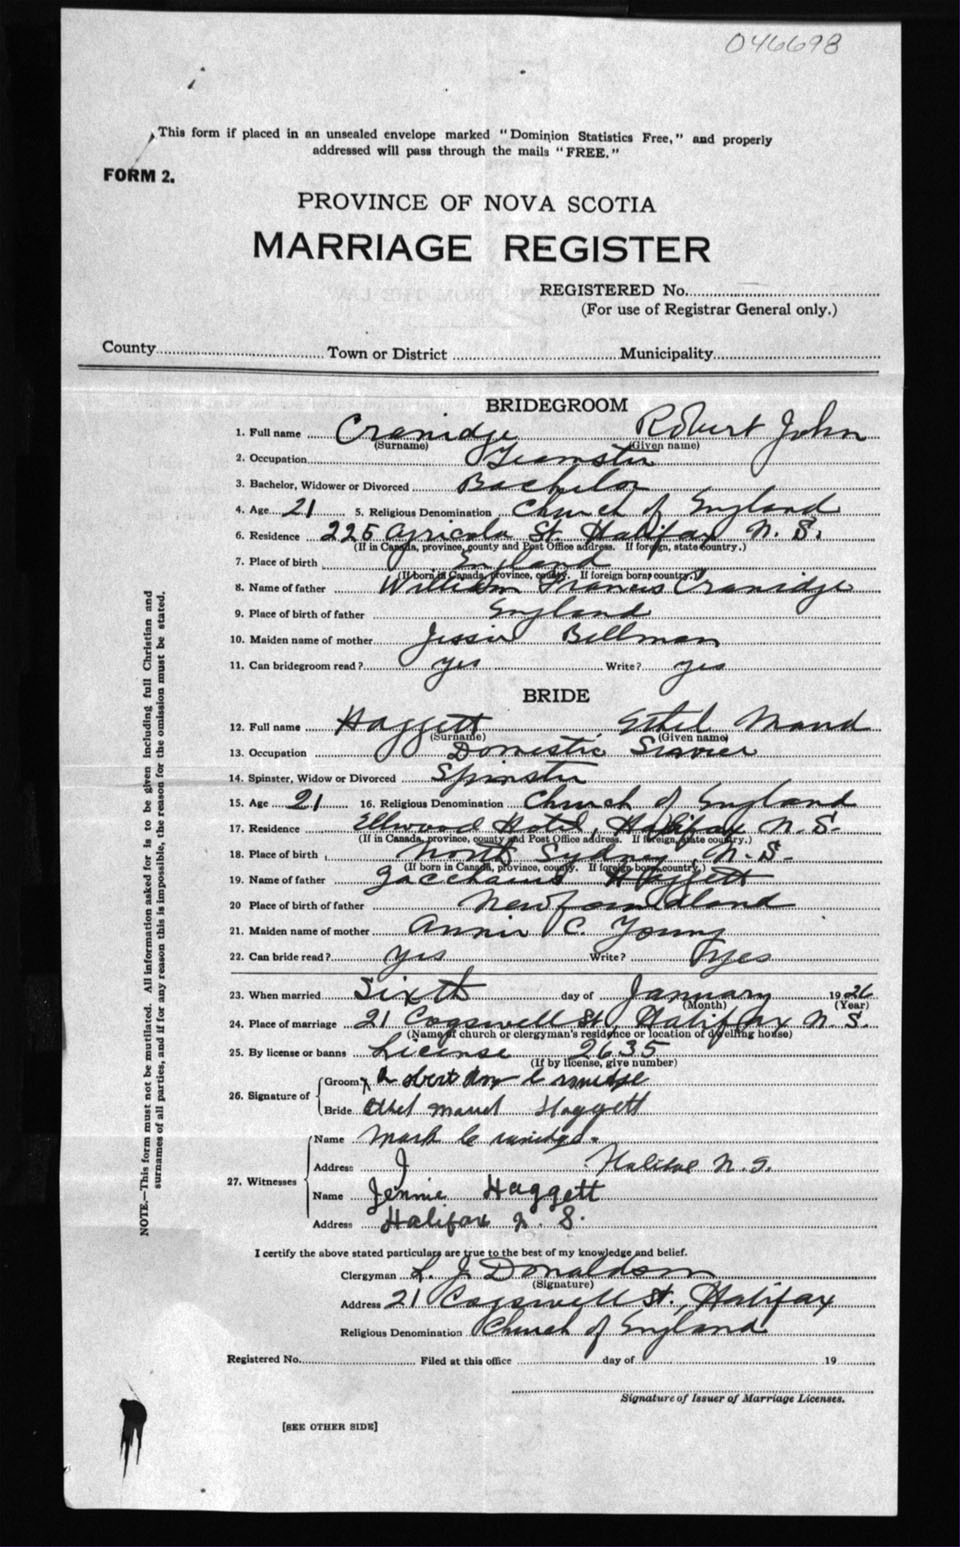 046698
This form if placed in an unsealed envelope marked "Dominion Statistics Free," and properly
addressed will pass through the mails "FREE."
FORM 2.
PROVINCE OF NOVA SCOTIA
MARRIAGE REGISTER
REGISTERED No.
(For use of Registrar General only.)
County Town or District Municipality
BRIDEGROOM
1. Full name Cranidge Robert John
(Surname) (Given name)
2. Occupation Teamster
3. Bachelor, Widower or Divorced Bachelor
4. Age 21 5. Religious Denomination Church of England
6. Residence 225 Agricola St. Halifax N. S.
(If in Canada, province, county and Post Office address. If foreign, state country.)
7. Place of birth England
(If born in Canada, province, county. If foreign born, country.)
8. Name of father William Francis Cranidge
9. Place of birth of father England
10. Maiden name of mother Jessie Bellman
11. Can bridegroom read? yes Write? yes
BRIDE
12. Full name Haggett Ethel Maud
(Surname) (Given name)
13. Occupation Domestic
14. Spinster, Widow or Divorced Spinster
15. Age 21 16. Religious Denomination Church of England
17. Residence Ellwood Hotel, Halifax N. S.
(If in Canada, province, county and Post Office address. If foreign, state country.)
18. Place of birth North Sydney N. S.
(If born in Canada, province, county. If foreign born, country.)
19. Name of father Haggett
20 Place of birth of father Newfoundland
21. Maiden name of mother Annie C. Young
22. Can bride read? yes Write? yes
23. When married Sixth day of January 1926
(Month) (Year)
24. Place of marriage 21 Cogswell St, Halifax N. S.
(Name of church or clergyman's residence or location of dwelling house)
25. By license or banns License 2635
(If by license, give number)
26. Signature of Groom x Robert Cranidge
Bride Ethel Maud Haggett
27. Witnesses Name Mark Cranidge.
Address Halifax N. S.
Name Jennie Haggett
Address Halifax N. S.
I certify the above stated particulars are true to the best of my knowledge and belief.
Clergyman L. J. Donaldson
(Signature)
Address 21 Cogswell St., Halifax
Religious Denomination Church of England
Registered No. Filed at this office day of 19
Signature of Issuer of Marriage Licenses.
[SEE OTHER SIDE]
NOTE.—This form must not be mutilated. All information asked for is to be given including full Christian and
surnames of all parties, and if for any reason this is impossible, the reason for the omission must be stated.